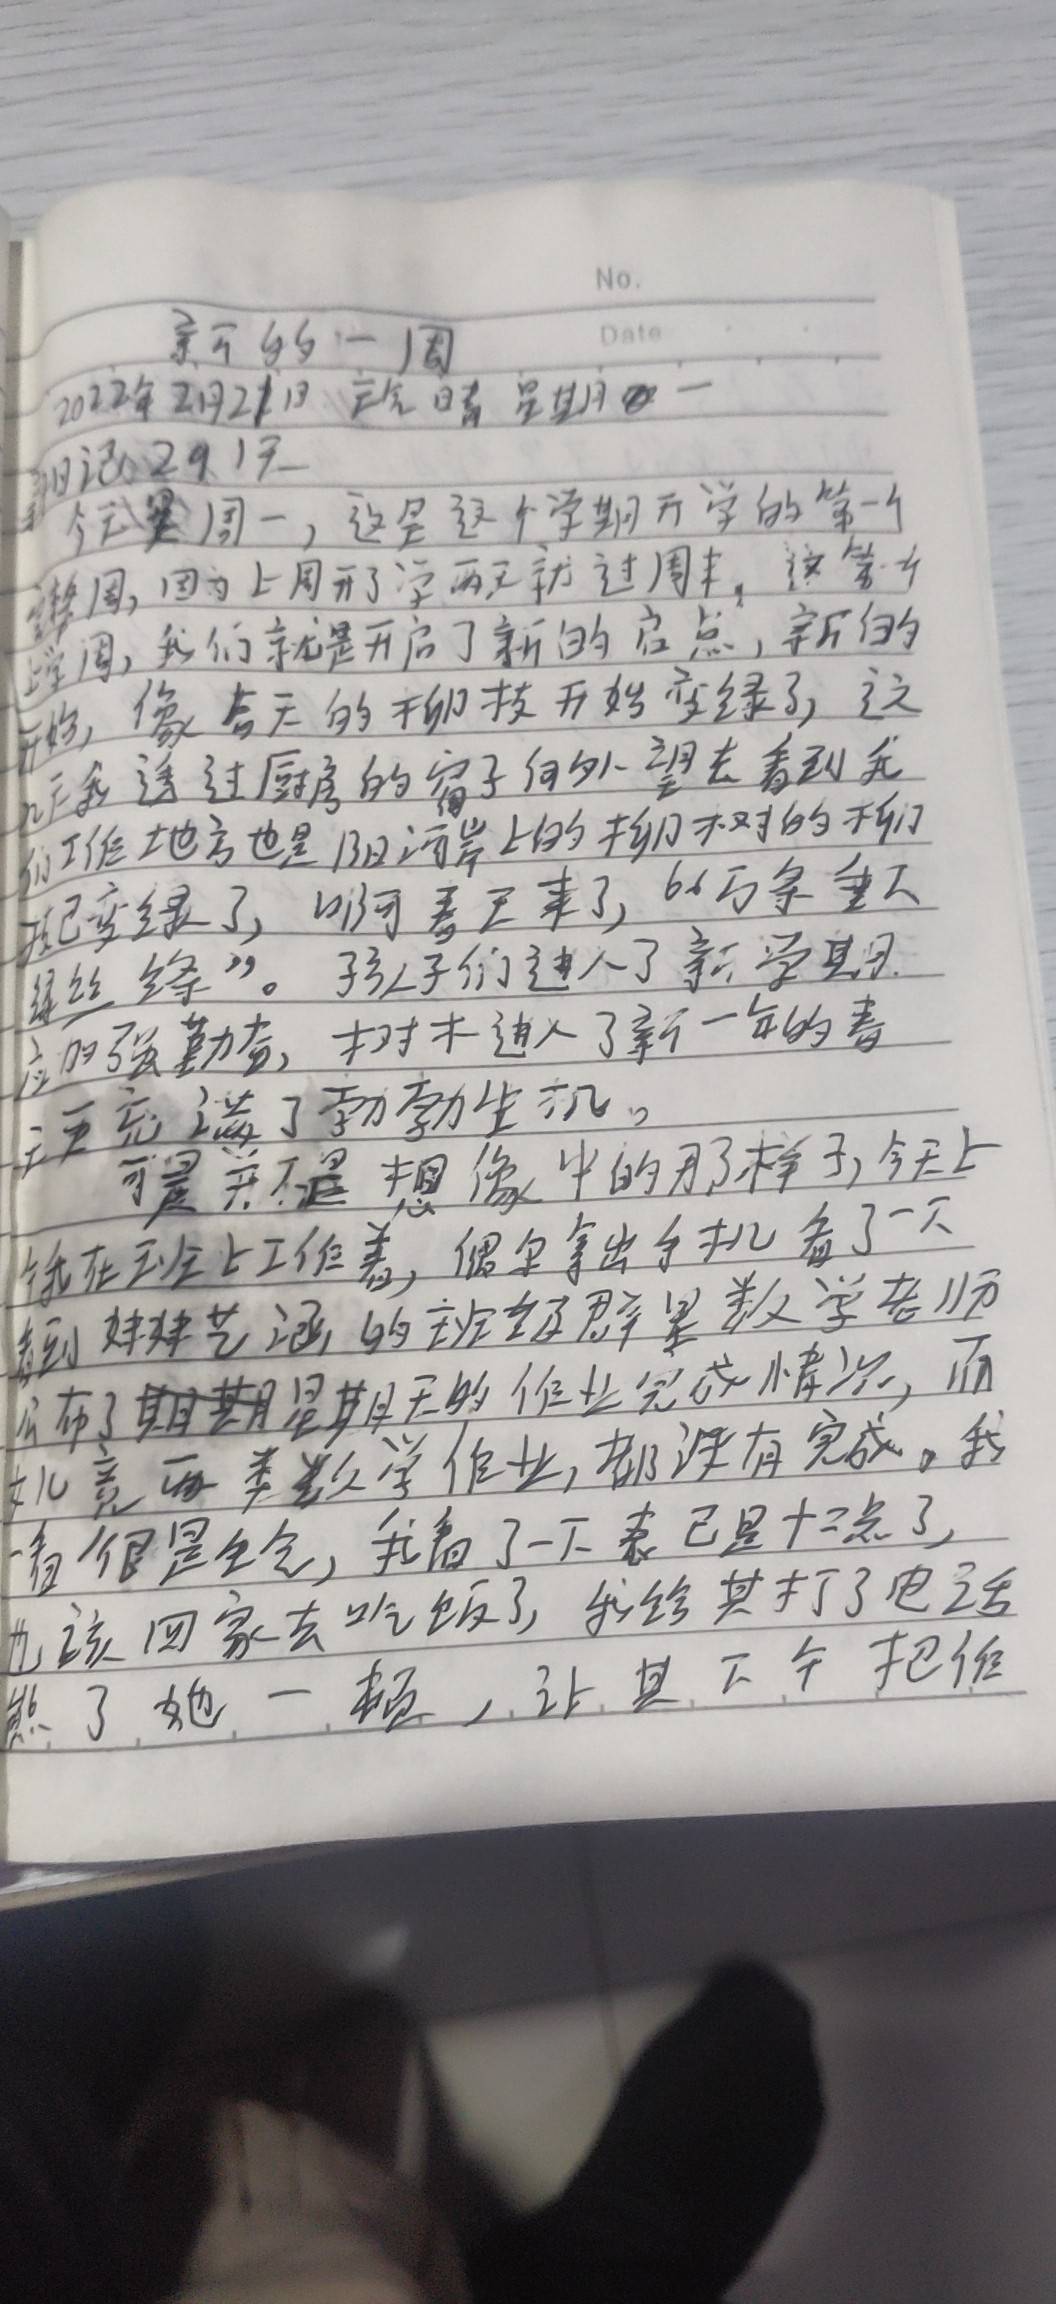 No.
Date
新的一周
2022年2月21日 晴 星期一
日记291天
今天是周一，这是这个学期开学的第一个
整周，因为上周开了学两天就过周末，这第一个
上学周，我们就是开启了新的启点，新的
开始，像春天的柳枝开始变绿了，这
几天我透过厨房的窗子向外望去看到我
们工作地方也是阳河岸上的柳树的柳
枝已变绿了，啊春天来了，“万条垂下
绿丝绦”。孩子们进入了新学期
应加强勤奋，树木进入了新一年的春
天更充满了勃勃生机。
可是并不是想像中的那样子，今天上
午我在班上工作着，偶尔拿出手机看了一下
看到妹妹艺涵的班级群里数学老师
公布了星期天的作业完成情况，而
女儿竟两类数学作业，都没有完成。我
一看很是生气，我看了一下表已是十二点了，
也该回家去吃饭了，我给其打了电话
熊了她一顿，让其下午把作